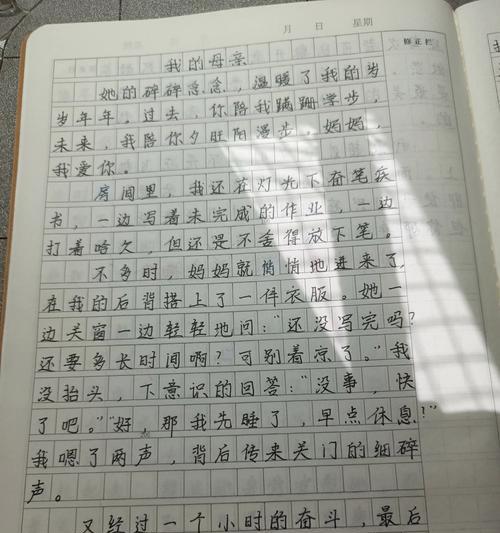 月 日 星期
修正栏
我的母亲
她的碎碎念念,温暖了我的岁
岁年年。过去,你陪我蹒跚学步,
未来,我陪你夕阳漫步,妈妈,
我爱你。
房间里,我还在灯光下奋笔疾
书,一边写着未完成的作业,一边
打着哈欠,但还是不舍得放下笔。
不多时,妈妈就悄悄地进来了,
在我的后背搭上了一件衣服。她一
边关窗一边轻轻地问:“还没写完吗?
还要多长时间啊?可别着凉了。”我
没抬头,下意识的回答:“没事,快
了吧。”“好,那我先睡了,早点休息!”
我嗯了两声,背后传来关门的细碎
声。
又经过一个小时的奋斗,最后